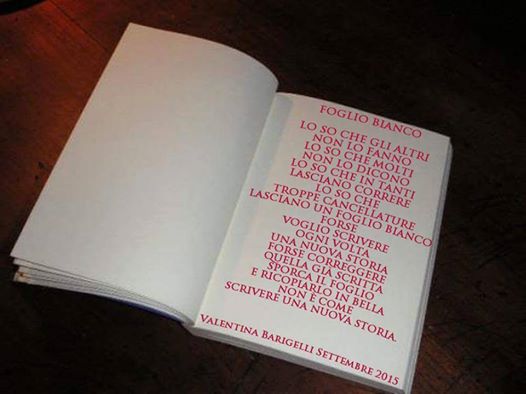 FOGLIO BIANCO
LO SO CHE GLI ALTRI
NON LO FANNO
LO SO CHE MOLTI
NON LO DICONO
LO SO CHE IN TANTI
LASCIANO CORRERE
LO SO CHE
TROPPE CANCELLATURE
LASCIANO UN FOGLIO BIANCO
FORSE
VOGLIO SCRIVERE
OGNI VOLTA
UNA NUOVA STORIA
FORSE CORREGGERE
QUELLA GIÀ SCRITTA
SPORCA IL FOGLIO
E RICOPIARLO IN BELLA
NON È COME
SCRIVERE UNA NUOVA STORIA.
VALENTINA BARIGELLI SETTEMBRE 2015